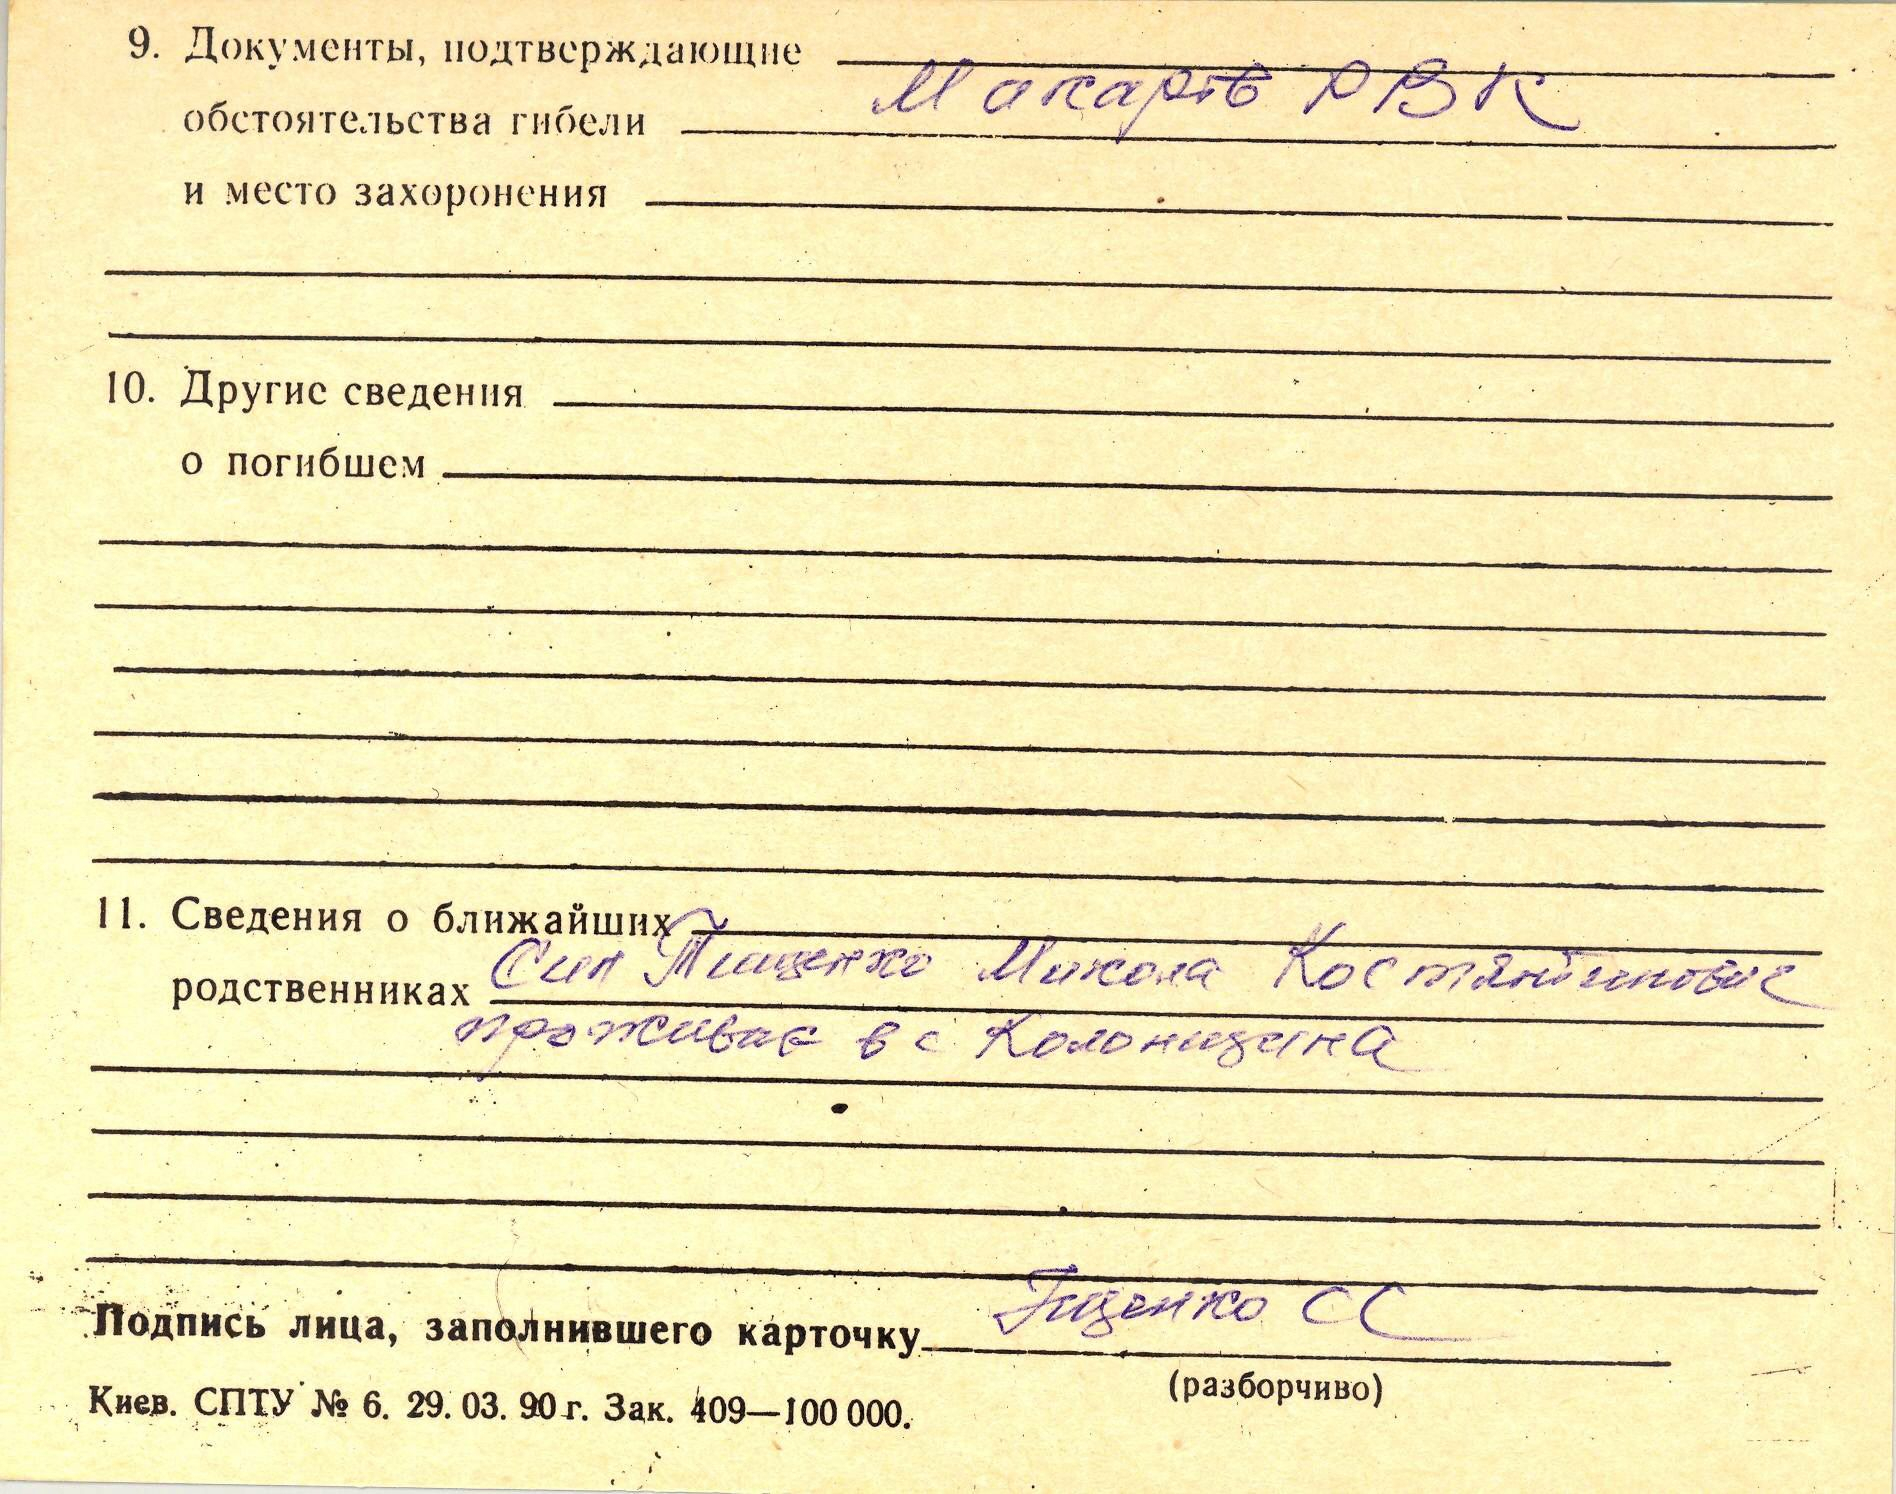 9. Документы, подтверждающие
обстоятельства гибели Макарів РВК
и место захоронения
10. Другие сведения
о погибшем
11. Сведения о ближайших
родственниках Син Тищенко Микола Костянтинович
проживає в с Колонщина
Подпись лица, заполнившего карточку СС
(разборчиво)
Киев. СПТУ № 6. 29. 03. 90 г. Зак. 409—100 000.